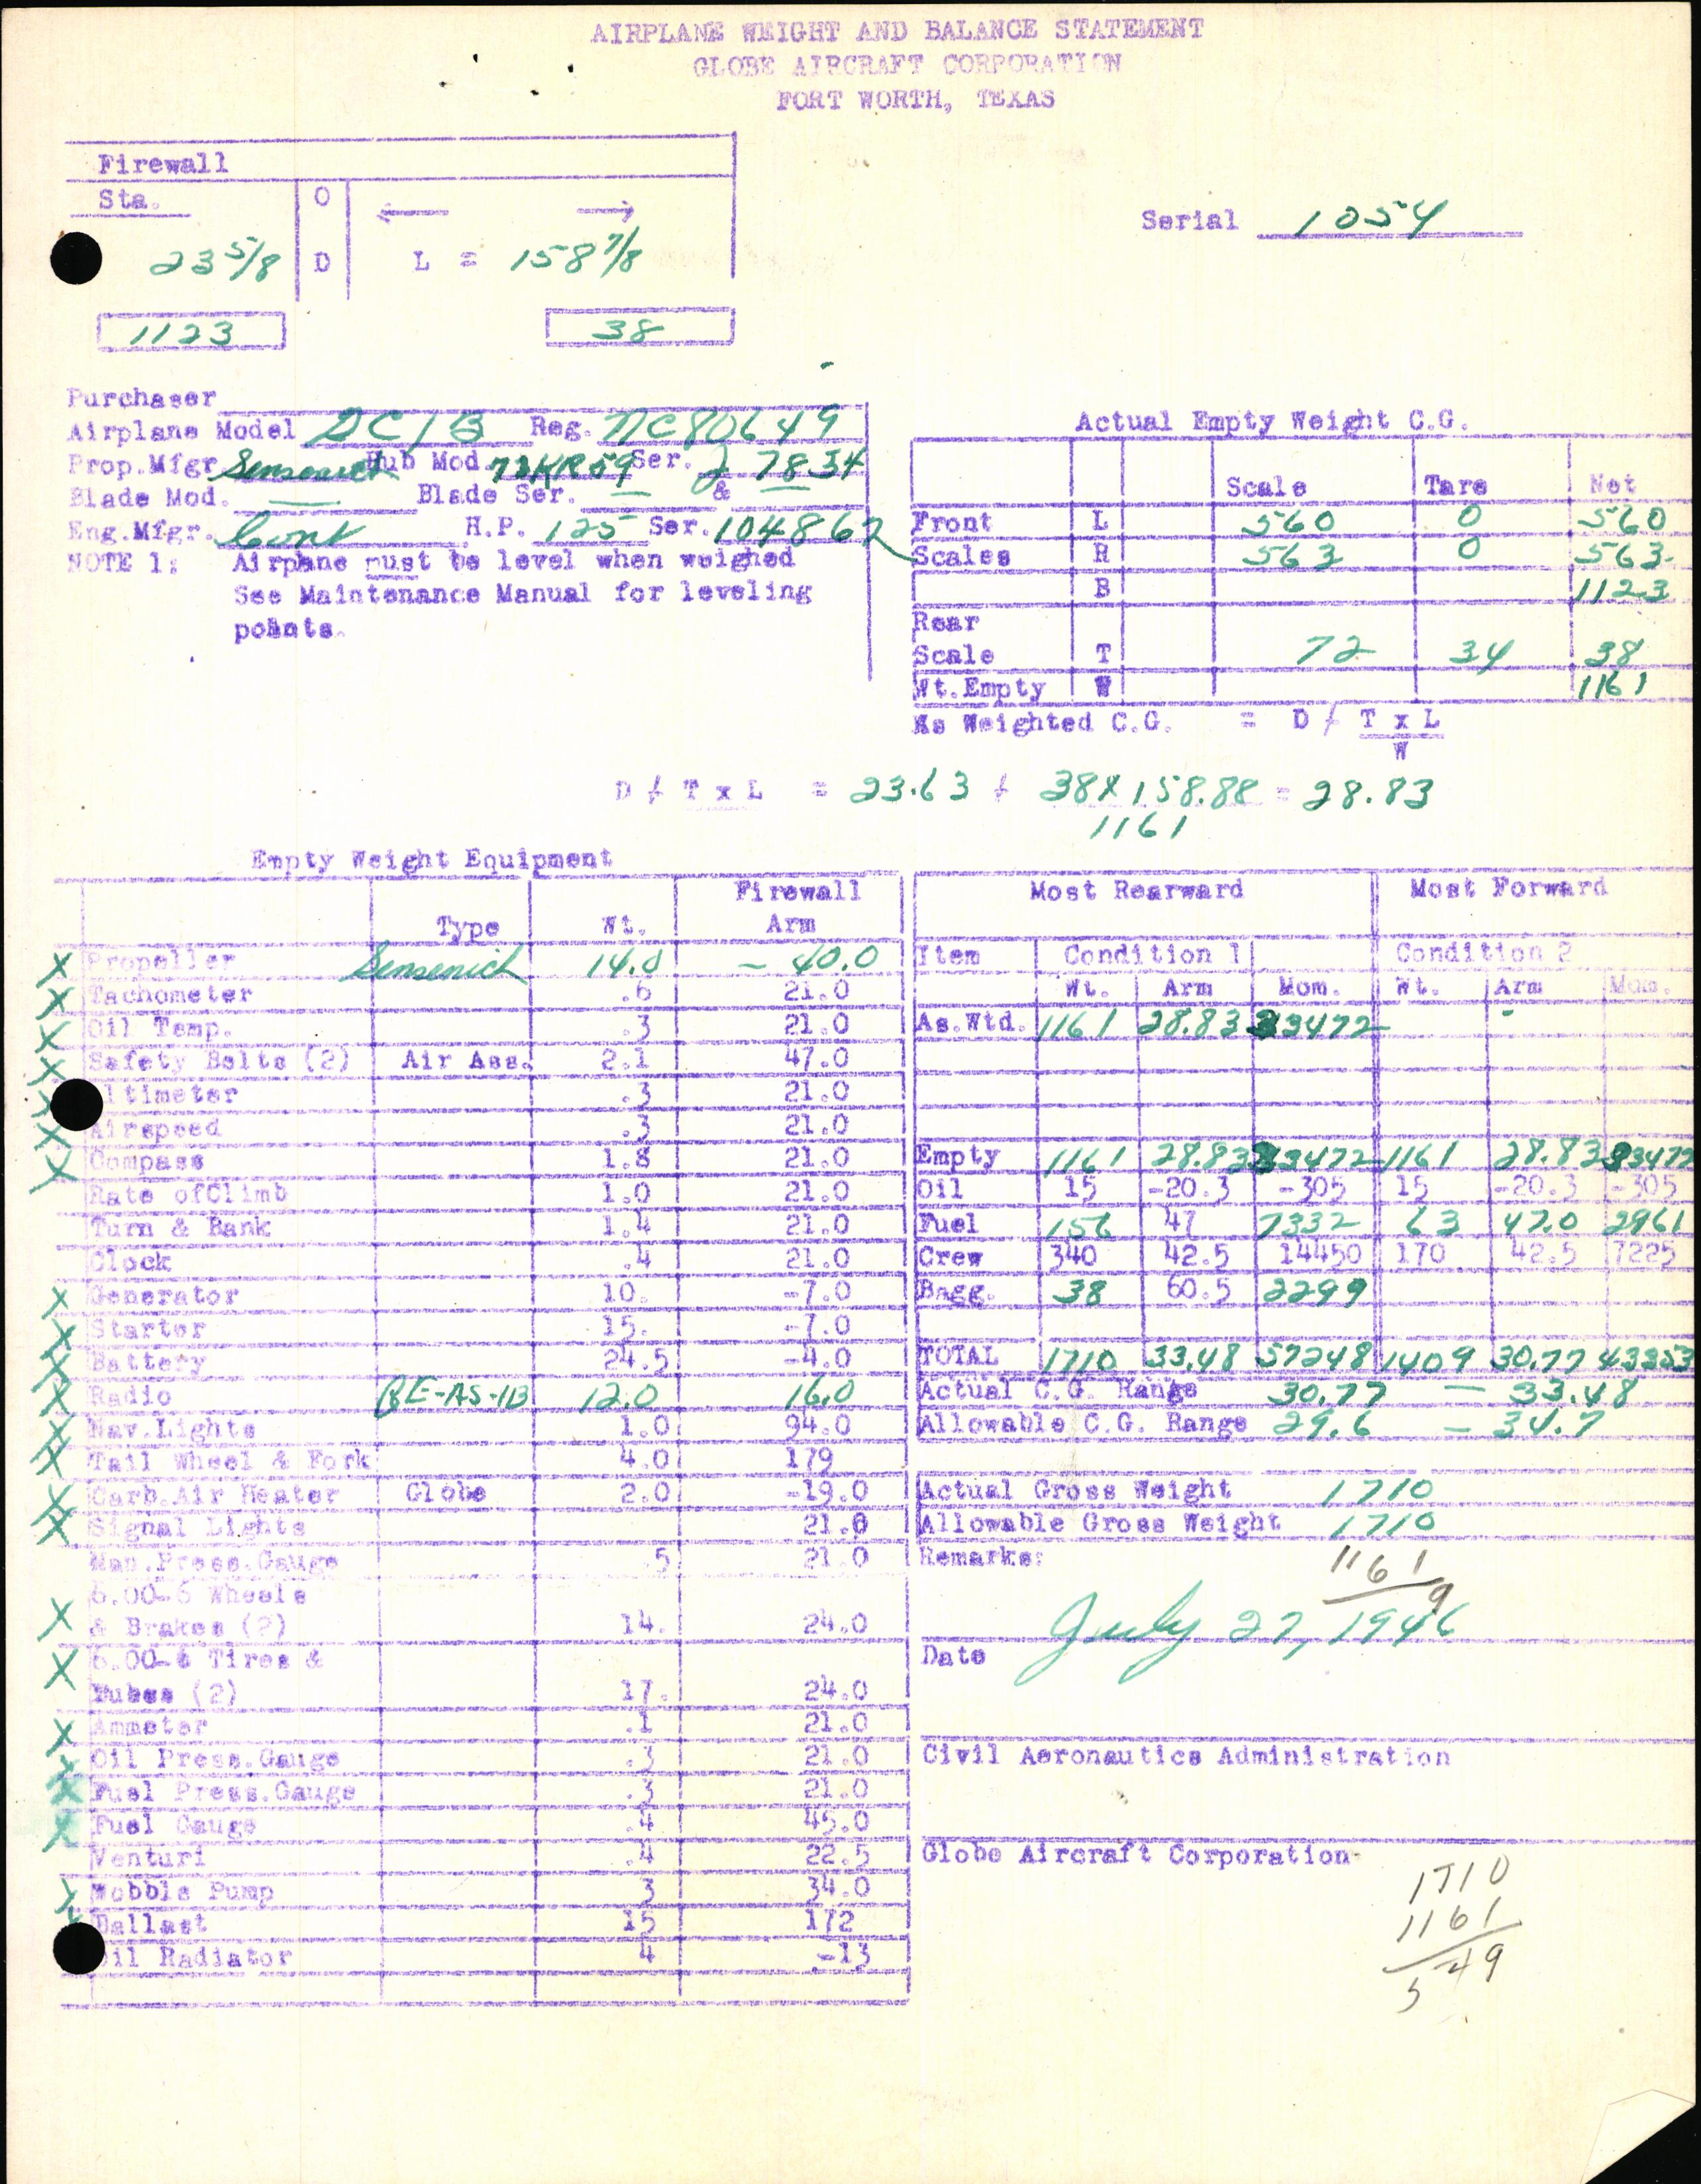 AIRPLANE WEIGHT AND BALANCE STATEMENT
GLOBE AIRCRAFT CORPORATION
FORT WORTH, TEXAS
Firewall
Sta. O
Serial 1054
23 5/8 D L = 158 7/8
1123 38
Purchaser
Airplane Model DC1B Reg. NC80649
Prop.Mfgr. Sensenich Hub Mod. 73KR59 Ser. 27834
Blade Mod. — Blade Ser. — & —
Eng.Mfgr. Cont H.P. 125 Ser. 104862
NOTE 1: Airpane must be level when weighed
See Maintenance Manual for leveling
points.
Actual Empty Weight C.G.
Scale Tare Net
Front L 560 0 560
Scales R 563 0 563
B 1123
Rear
Scale T 72 34 38
Wt.Empty W 1161
As Weighted C.G. = D / T x L
W
D / T x L = 23.63 + 38 X 158.88 = 28.83
1161
Empty Weight Equipment
Type Wt. Firewall Arm
X Propeller Sensenich 14.0 - 40.0
X Tachometer .6 21.0
X Oil Temp. .3 21.0
X Safety Belts (2) Air Ass. 2.1 47.0
X ltimeter .3 21.0
X Airspeed .3 21.0
X Compass 1.8 21.0
Rate ofClimb 1.0 21.0
Turn & Bank 1.4 21.0
Clock .4 21.0
X Generator 10. -7.0
X Starter 15. -7.0
X Battery 24.5 -4.0
X Radio RE-AS-1B 12.0 16.0
X Nav.Lights 1.0 94.0
X Tail Wheel & Fork 4.0 179
X Carb.Air Heater Globe 2.0 -19.0
X Signal Lights 21.0
Man.Press.Gauge .5 21.0
6.00-6 Wheels
X & Brakes (2) 14. 24.0
X 6.00-6 Tires &
Tubes (2) 17. 24.0
X Ammeter .1 21.0
X Oil Press.Gauge .3 21.0
X Fuel Press.Gauge .3 21.0
X Fuel Gauge .4 45.0
Venturi .4 22.5
X Wobble Pump 3 34.0
X Ballast 15 172
il Radiator 4 -13
Most Rearward Most Forward
Item Condition 1 Condition 2
Wt. Arm Mom. Wt. Arm Mom.
As.Wtd. 1161 28.83 33472
Empty 1161 28.83 33472 1161 28.83 33472
Oil 15 -20.3 -305 15 -20.3 -305
Fuel 156 47 7332 63 47.0 2961
Crew 340 42.5 14450 170 42.5 7225
Bagg. 38 60.5 2299
TOTAL 1710 33.48 57248 1409 30.77 43353
Actual C.G. Range 30.77 - 33.48
Allowable C.G. Range 29.6 - 34.7
Actual Gross Weight 1710
Allowable Gross Weight 1710
Remarks: 1161
9
July 27, 1946
Date
Civil Aeronautics Administration
Globe Aircraft Corporation
1710
1161
549